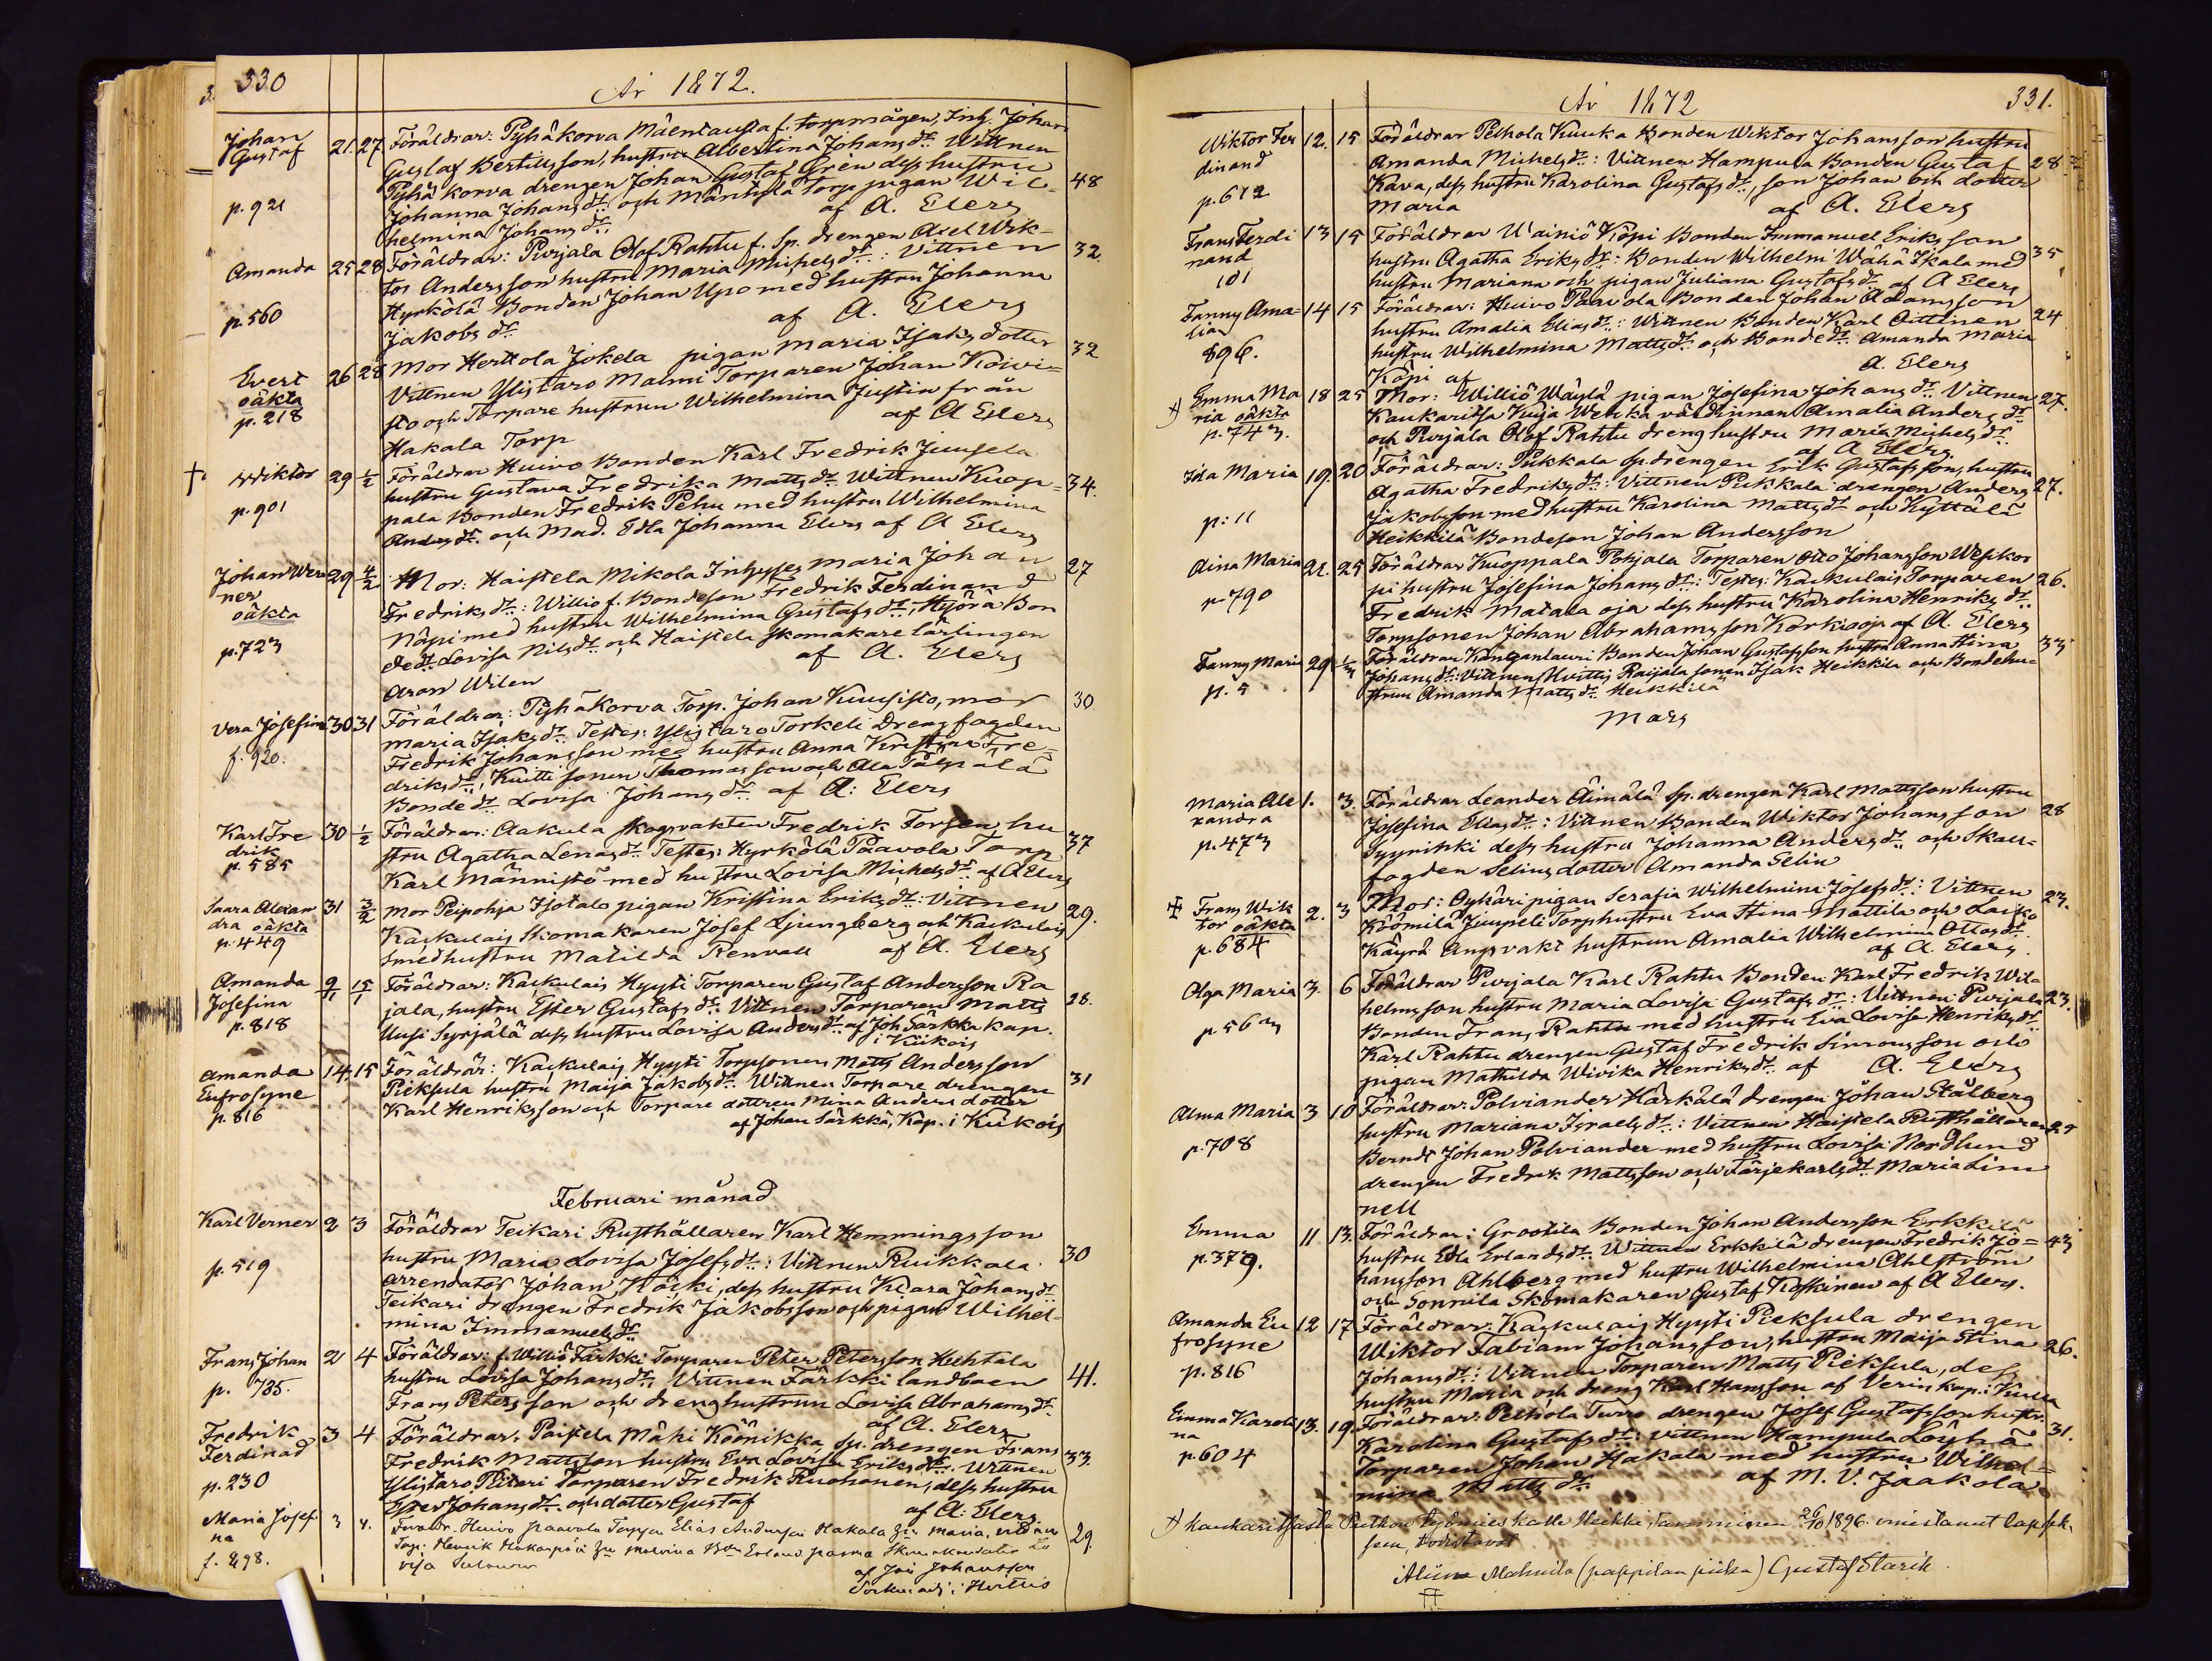 330
År 1872.
Johan Gustaf 21. 27. Föräldrar: Pyhäkorva Mäentausta f. torpmågen, Inh. Johan
Gustaf Bertilsson, hustru Albertina Johansdr. Wittnen
Pyhäkorva drengen Johan Gustaf Grén dess hustru 48
p. 921 Johanna Johansdr. och Mäntylä Torp pigan Wil-
helmina Johansdr. af A. Elers
Amanda 25 28 Föräldrar: Purjala Olof Rahtu f. Sp. drengen Axel Wik- 32.
tor Andersson hustru Maria Michelsdr.: Vittnen
Hyrkölä Bonden Johan Upo med hustru Johanna
p. 560 Jakobsdr. af A. Elers
Evert oäkta 26 28 Mor Herttola Jokela pigan Maria Isaksdotter 32
p. 218 Vittnen Ylistaro Malmi Torparen Johan Koivi-
sto och Torpare hustrun Wilhelmina Justin från
Hakala Torp af A Elers
†. Wiktor 29 1/2 Föräldrar Huivo Bonden Karl Fredrik Junsela
hustru Gustava Fredrika Mattsdr. Wittnen Kuop- 34.
p. 901 pala Bonden Fredrik Pehu med hustru Wilhelmina
Andersdr. och Mad. Edla Johanna Elers af A Elers
Johan Wer ner oäkta 29 4/2 Mor: Haistela Mikola Inhyses Maria Johan 27
Fredriksdr.: Willio f. Bondeson Fredrik Ferdinand
Nöpi med hustru Wilhelmina Gustafsdr., Bon
p. 723 dedr. Lovisa Nilsdr. och Haistela Skomakare lärlingen
Aron Wilen af A. Elers
Vera Josefina 30 31 Föräldrar: Pyhäkorva Torp. Johan Kuusisto, mor 30.
Maria Isaksdr. Testes: Ylistaro Torkeli Drengfogden
f. 920. Fredrik Johansson med hustru Anna Kristina Fre-
driksdr., Kuitti sonen Thomasson och Ala Tälpälä
Bondedr. Lovisa Johansdr. af A: Elers
Karl Fre drik 30 1/2 Föräldrar: Aakula skogvakten Fredrik Forsen, hu 37
p. 585 stru Agatha Lenasdr. Testes: Hyrkölä Paavola Torp
Karl Männistö med hustru Lovisa Michelsdr. af A Elers
Saara Alexan dra oäkta 31 3/2 Mor Peipohja Isotalo pigan Kristina Eriksdr.: Vittnen 29.
p. 449 Kaskulais Skomakaren Josef Ljungberg och Kaskulais
smedhustru Matilda Renvall af A. Elers
Amanda Josefina 9/11 15/1 Föräldrar: Kaskulais Hyysti Torparen Gustaf Andersson Ra
p. 818 jala, hustru Ester Gustafsdr. Vittnen Torparen Matts 28.
Uusi Syrjälä dess hustru Lovisa Andersdr. af Joh Särkkä kap.
i Kiikois
Amanda Eufrosyne 14. 15 Föräldrar: Kaskulais Hyysti Torpsonen Matts Andersson 31
p. 816 Pieksula hustru Maija Jakobsdr. Wittnen Torpare drengen
Karl Henriksson och Torpare dottren Mina Anders dotter
af Johan Särkkä, Kap. i Kiikois
Februari månad
Karl Verner 2 3 Föräldrar Teikari Rusthållaren Karl Hemmingsson
hustru Maria Lovisa Josefsdr.: Vittnen Ruikkala 30
p. 519 arrendator Johan Höski, dess hustru Klara Johansdr.
Teikari drengen Fredrik Jakobsson och pigan Wilhel-
mina Immanuelsdr.
Frans Johan 2 4 Föräldrar: f. Willio Färkki Torparen Peter Petersson Huhtala
p. 735. hustru Lovisa Johansdr., Vittnen Färkki landboen 41.
Frans Petersson och drenghustrun Lovisa Abrahamsdr.
af A. Elers
Fredrik Ferdinad 3 4 Föräldrar: Paistela Mäki Köönikkä, Sp. drengen Frans 33.
p. 230 Fredrik Mattsson hustru Eva Lovisa Eriksdr. Vittnen
Ylistaro Piitari Torparen Fredrik Ruohonen, dess hustru
Ester Johansdr. och dotter Gustaf af A: Elers.
Maria Josef na 3 4. Huivo Paavola Elias Andersson Hakala Maria. 29.
f. 898. Henrik Erland
visa
af Johansson
i Huittis
331.
År 1872
Wiktor Fer dinand 12. 15 Föräldrar Pelhola Kuuka Bonden Wiktor Johansson hustru
p. 612 Amanda Michelsdr.: Vittnen Hampula Bonden Gustaf 28
Kara, dess hustru Karolina Gustafsdr., son Johan och dotter
Maria af A. Elers
Frans Ferdi nand 13 15 Föräldrar Wainiö Köpi Bonden Immanuel Eriksson 35
101 hustru Agatha Eriksdr.: Bonden Wilhelm Wähä Skala med
hustru Mariana och pigan Juliana Gustafsdr. af A Elers
Fanny Ama- lia 14 15 Föräldrar: Huivo Paavola Bonden Johan Adamsson 24
896. hustru Amalia Eliasdr.: Wittnen Bonden Karl Oittinen
hustru Wilhelmina Mattsdr. och Bondedr. Amanda Maria
Köpi af A. Elers
+) Emma Ma ria oäkta 18 25 Mor: Williö Wäylä pigan Josefina Johansdr. Vittnen 27.
p. 743. Kaukaritsa Kuja Wehka värdinnan Amalia Andersdr.
och Purjala Olof Rahtu drenghustru Maria Michelsdr.
af A Elers.
Ida Maria 19. 20 Föräldrar: Pukkala Sp.drengen Erik Gustafsson, hustru
Agatha Fredriksdr.: Vittnen Pukkala drengen Anders 27.
p: 11 Jakobsson med hustru Karolina Mattsdr. och Kyttälä
Heikkilä Bondeson Johan Andersson
Aina Maria 21. 25 Föräldrar Kuoppala Pohjala Torparen Otto Johansson Wesikos
p. 790 pi hustru Josefina Johansdr.: Testes: Kaskulais Torparen 26.
Fredrik Matala oja dess hustru Karolina Henriksdr.
Torpsonen Johan Abrahamsson Korkiaoja af A. Elers
Fanny Maria 29 1/3 Föräldrar Kanganlauri Bonden Johan Gustafsson hustru Anna Stina 33
p. 5 Johansdr.: Vittnen Huittis Raijala sonen Isak Heikkilä och Bondehu-
strun Amanda Mattsdr. Heikkilä
Mars
Maria Ale xandra 1. 3. Föräldrar Leander Äimälä Sp. drengen Karl Mattsson hustru
p. 473 Josefina Eliasdr.: Vittnen Bonden Wiktor Johansson 28
dess hustru Johanna Andersdr. och Skall-
fogden Selins dotter Amanda Selin
Frans Wik tor oäkta 2. 3 Mor: Oykäri pigan Serafia Wilhelmina Josefsdr.: Vittnen 23.
p. 684 Köömilä Junpeli Torphustru Eva Stina Mattila och Lasko
Käyrä Ångsvakt hustrun Amalia Wilhelmina Ottosdr.
af A. Elers.
Olga Maria 3. 6 Föräldrar Purjala Karl Rahtu Bonden Karl Fredrik Wil-
helmsson hustru Maria Lovisa Gustafsdr.: Vittnen: Purjala 23.
p. 563 Bonden Frans Rahtu med hustru Eva Lovisa Henriksdr.
Karl Rahtu drengen Gustaf Fredrik Simonsson och
pigan Mathilda Wivika Henriksdr. af A. Elers
Alma Maria 3 10 Föräldrar: Polviander Härkälä drengen Johan Stålberg
hustru Mariana Israelsdr.: Vittnen Haistela Rusthållaren
p. 708 Berndt Johan Polviander med hustru Lovisa Nordlund
drengen Fredrik Mattsson och Färjekarlsdr. Maria Lim
nell
Emma 11 13. Föräldrar: Grootila Bonden Johan Andersson Erkkilä
p. 379. hustru Edla Erlandsdr.: Wittnen Erkkilä drengen Fredrik Jo- 43
hansson Ahlberg med hustru Wilhelmina Ahlström
och Sonnila Skomakaren Gustaf Koskinen af A Elers.
Amanda Eu frosyne 12 17 Föräldrar: Kaskulais Hyysti Pieksula drengen
Wiktor Fabian Johansson, hustru Maija Stina 26.
p. 816 Johansdr.: Vittnen Torparen Matts Pieksula, dess
hustru Maria och dreng Karl Hansson af Verin kap. i Kulla
Emma Karoli na 13. 19. Föräldrar: Pelhola Turro drengen Josef Gustafsson hustr. 31.
p. 604 Karolina Gustafsdr.: Vittnen Hampula Löyhä
Torparen Johan Hakala med hustru Wilhel-
mina Mattsdr. af M. V. Jaakola
+) Kalle Heikki Tamminen 20/10 1896 omistanut lapsek-
seen, todistavat
Mahnila (pappilan piika) Gustaf Starik